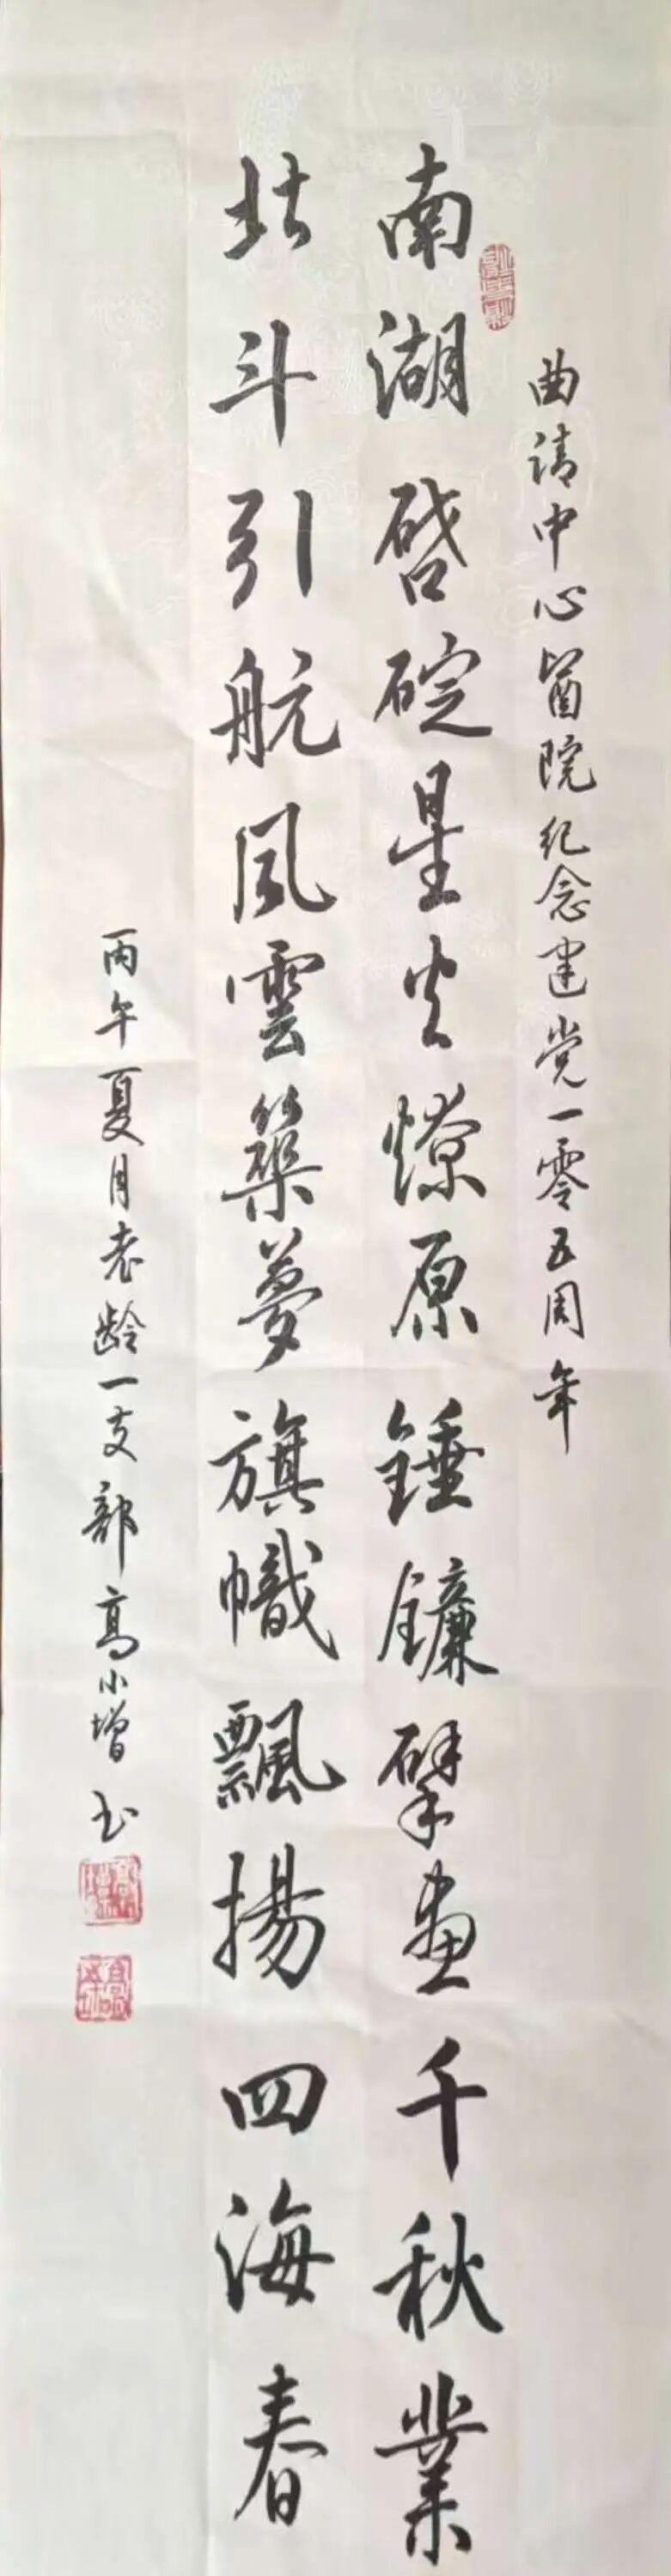 曲靖中心醫院纪念建党一零五周年
南湖啓碇星火燎原錘鐮擘畫千秋業
北斗引航風雲築夢旗幟飄揚四海春
丙午夏月老龄一支部高小增书